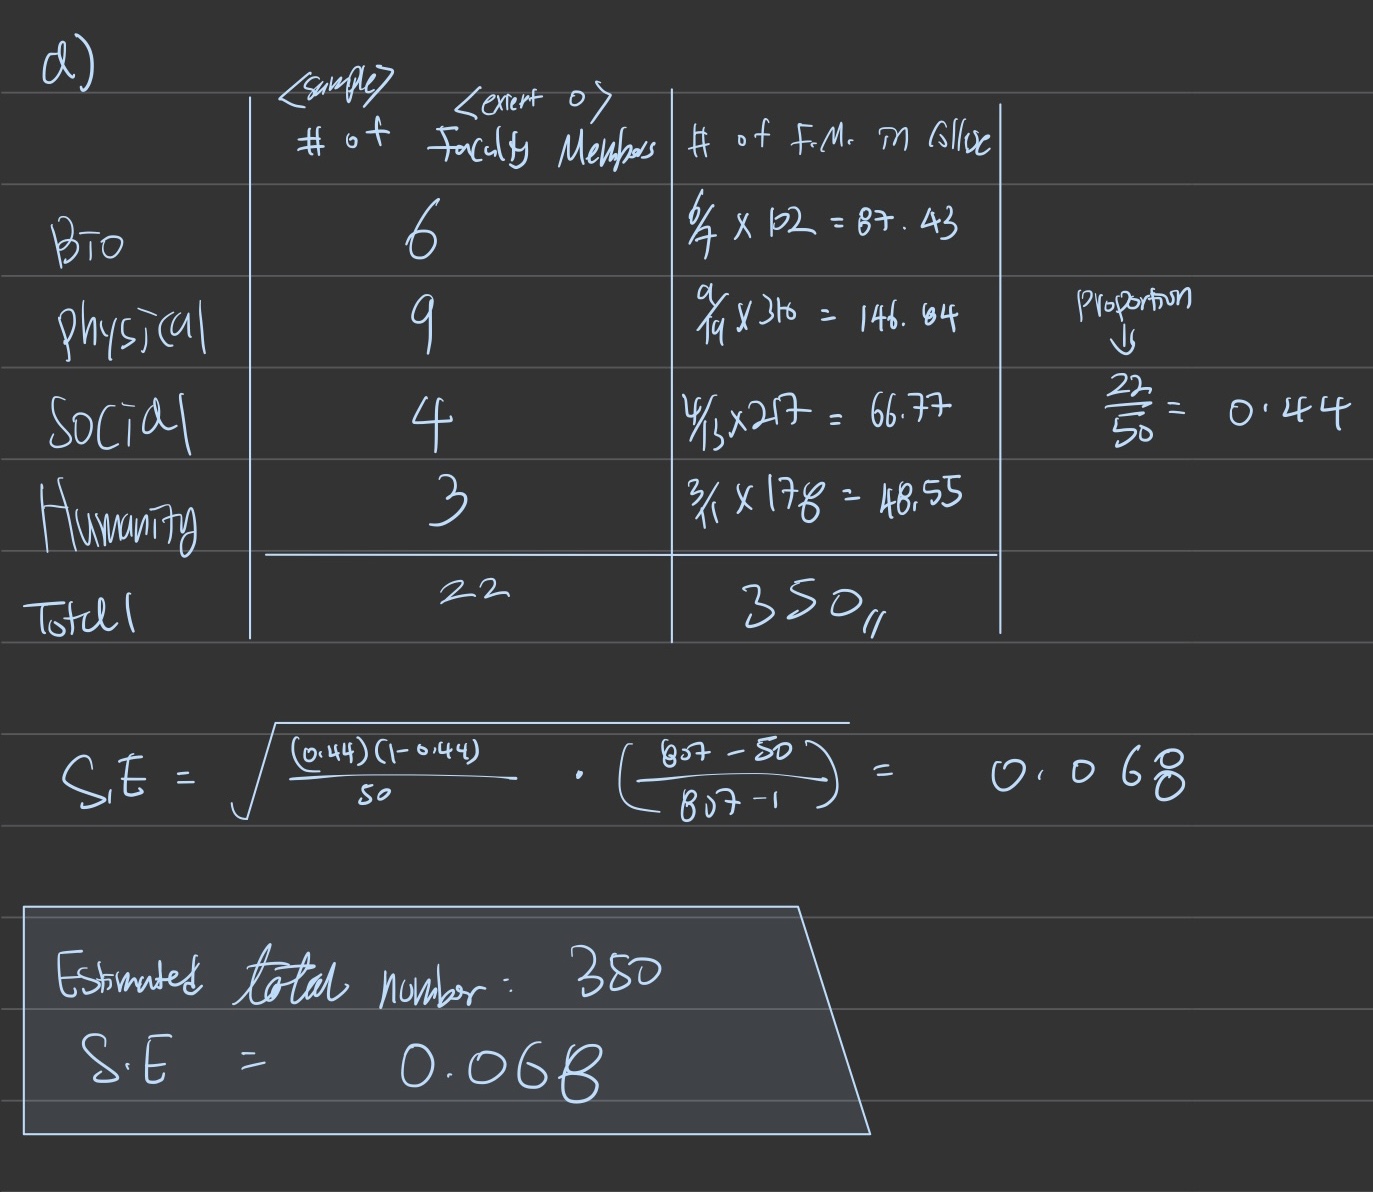 d)
<sample> <extent 0>
# of Faculty Members # of F.M. in
Bio 6 6/7 × 102 = 87.43
Physical 9 9/19 × 310 = 146.84
Social 4 4/13 × 217 = 66.77
Humanity 3 3/11 × 178 = 48.55
Total 22 350
Proportion
↓
22/50 = 0.44
S.E = √((0.44)(1-0.44)/50 · (807-50/807-1)) = 0.068
Estimated total number: 350
S.E = 0.068